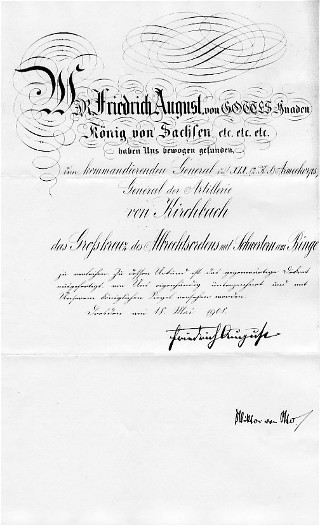 WIR Friedrich August, von GOTTES Gnaden
König von Sachsen, etc. etc. etc.
haben Uns bewogen gefunden,
dem kommandierenden General d. XIX. (2. K. S.) Armeekorps,
General der Artillerie
von Kirchbach
das Großkreuz des Albrechtsordens mit Schwertern am Ringe
zu verleihen. Zu dessen Urkund ist das gegenwärtige Dekret
ausgefertigt, von Uns eigenhändig unterzeichnet und mit
Unserem königlichen Siegel versehen worden.
Dresden, am 18. Mai 1908.
Friedrich August
Viktor von